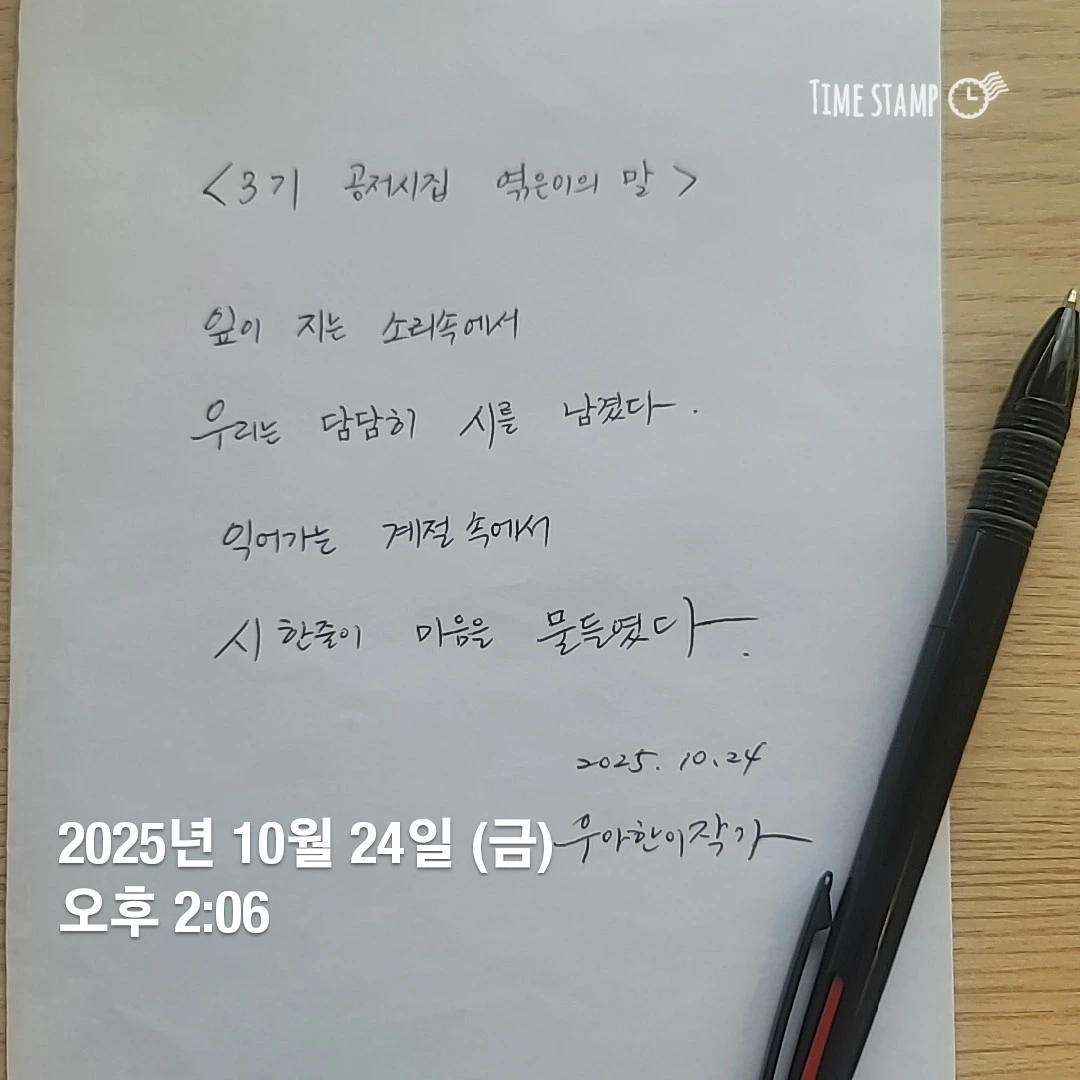 TIME STAMP
<3기 공저시집 엮은이의 말>
잎이 지는 소리속에서
우리는 담담히 시를 남겼다.
익어가는 계절 속에서
시 한줄이 마음을 물들였다.
2025. 10. 24
우아한이작가
2025년 10월 24일 (금)
오후 2:06